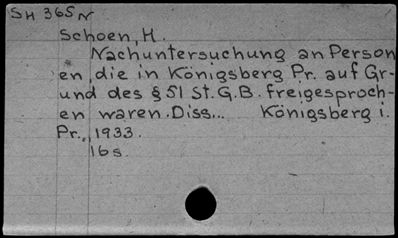 SH 365 N
Schoen, H.
Nachuntersuchung an Person
en, die in Königsberg Pr. auf Gr-
und des § 51 St.G.B. freigesproch-
en waren. Diss... Königsberg i.
Pr., 1933.
16 s.